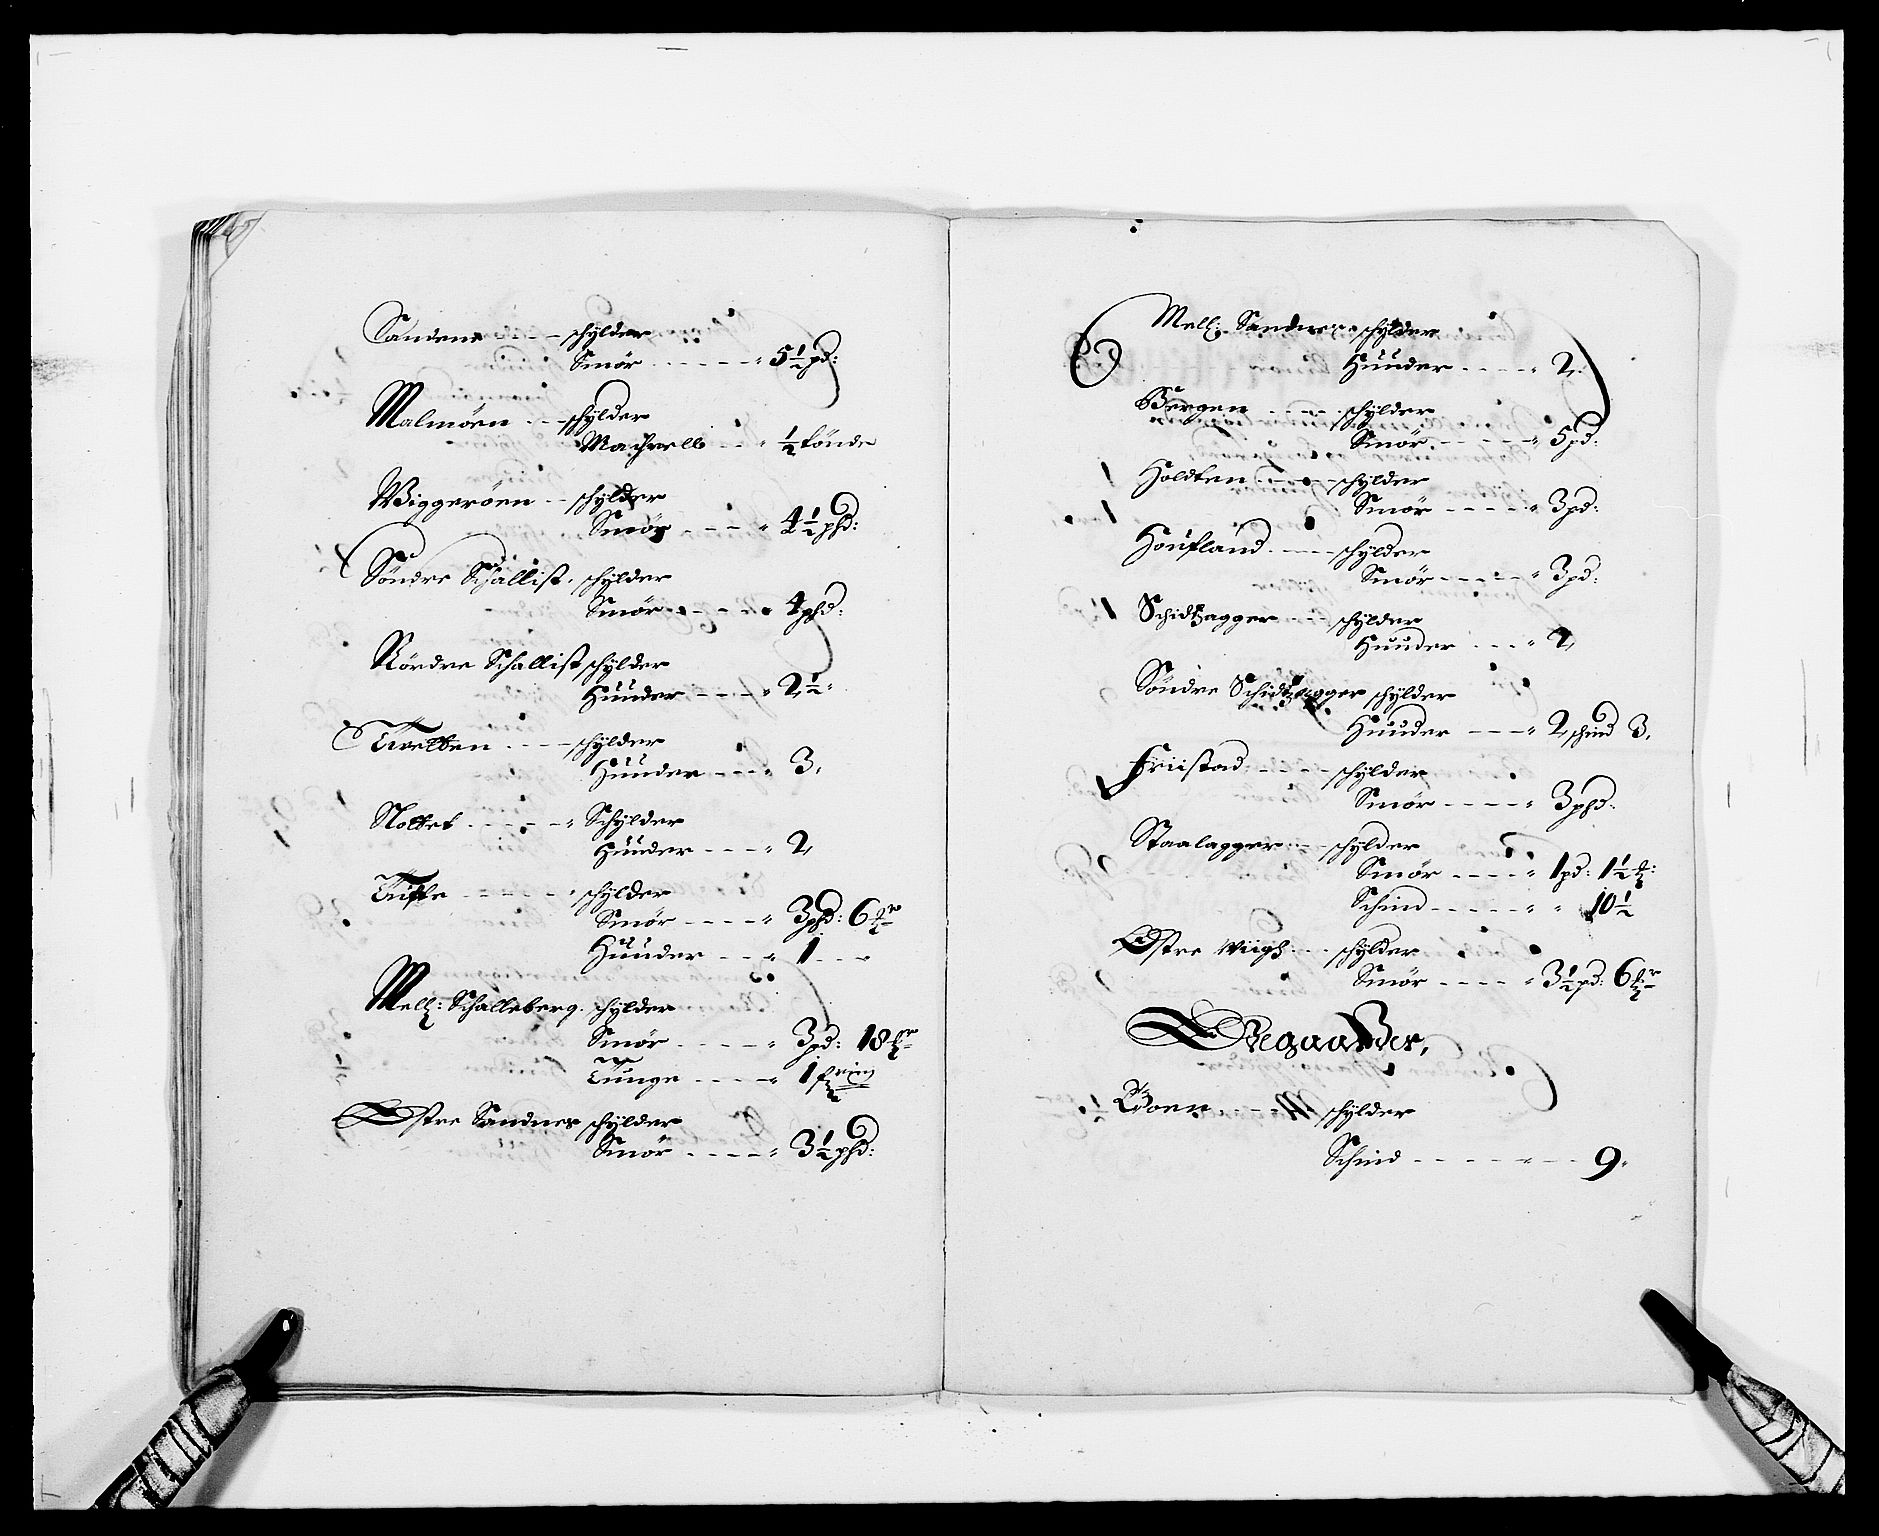 Sandene - - - schylder
Smør - - - - - - 5 1/2 pd:
Malmöen - - schylder
Machrell - - - 1/2 tönde
Wiggeröen - - schylder
Smør - - - - 4 1/2 phd:
Söndre Schallist. schylder
Smør - - - - 4 phd:
Nördre Schallist schylder
Huuder - - - - 2 1/2
Tvetten - - - schylder
Huuder - - - 3,
Nottet - - - - - Schylder
Huuder - - - 2,
Tufte - - - - - schylder
Smør - - - - 3 phd: 6 mr
Huuder - - - 1 - - -
Mell: Schalleberg. schylder
Smør - - - - 3 pd: 18 mr
Tunge - - - - 1
Østre Sandnes schylder
Smør - - - - 3 1/2 phd:
Mell: Sandnes schylder
Huuder - - - - 2,
Bergen - - - - schylder
Smør - - - - - 5 pd:
Holdten - - - schylder
Smør - - - - - 3 pd:
Houfland - - - schylder
Smør - - - - - 3 pd:
Schidtzagger - - - schylder
Huuder - - - 2,
Söndre Schidtzagger schylder
Huuder - - - 2, schind 3,
Friistad - - - - schylder
Smør - - - - 3 phd:
Staalagger - - schylder
Smør - - - - 1 pd: 1 1/2 mr:
Schind - - - - - 10 1/2
Østre Wiigh - - schylder
Smør - - - - 3 1/2 pd: 6 mr
Ødegaarder,
- - - schylder
Schind - - - - - - - 9.